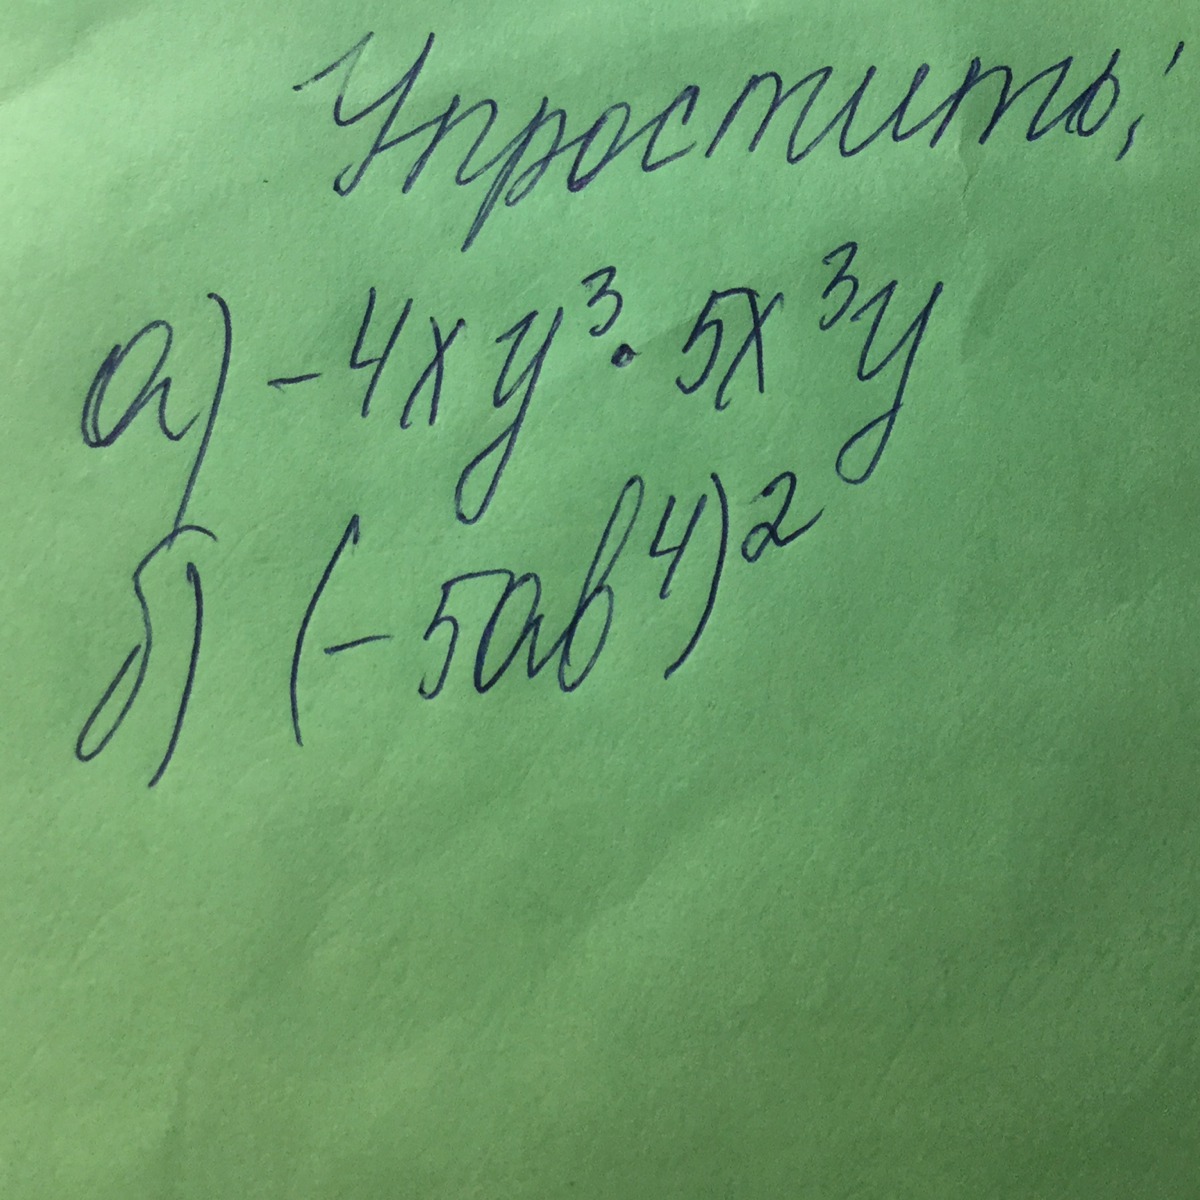 Упростить:
а) -4xy³ · 5x³y
б) (-5ab⁴)²